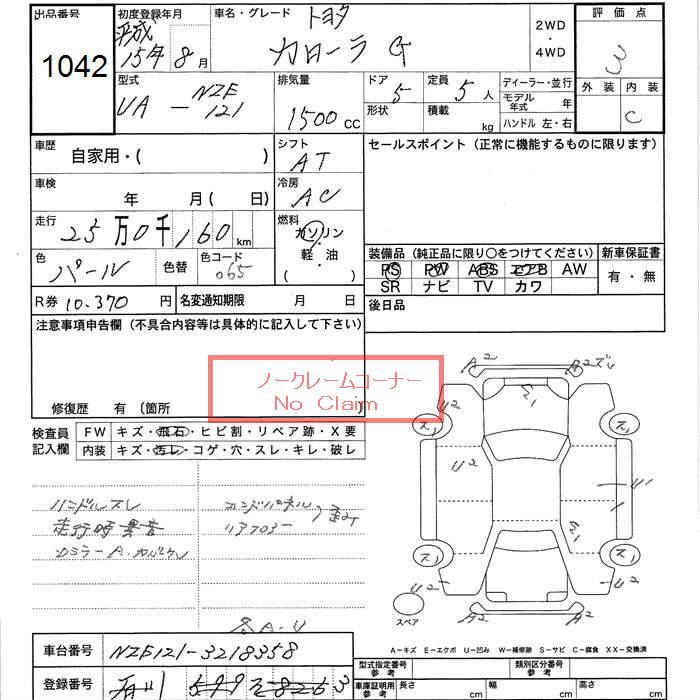 出品番号 初度登録年月 車名・グレード トヨタ 2WD ・ 4WD 評価点
1042 平成 15年 8月 カローラ G 3
型式 UA - NZE 121 排気量 1500 cc ドア 5 定員 5 人 ディーラー・並行 外装 内装
形状 積載 kg モデル年式 年 C
ハンドル 左・右
車歴 自家用・( ) シフト AT セールスポイント (正常に機能するものに限ります)
車検 年 月( 日) 冷房 AC
走行 25万0千160km 燃料 ガソリン・軽・油 ( )
色 パール 色替 色コード 065 装備品 (純正品に限り○をつけてください) 新車保証書
PS PW ABS エアB AW 有・無
SR ナビ TV カワ
R券 10.370 円 名変通知期限 月 日 後日品
注意事項申告欄 (不具合内容等は具体的に記入して下さい)
ノークレームコーナー
No Claim
修復歴 有 (箇所
検査員記入欄 FW キズ・飛石・ヒビ割・リペア跡・X要
内装 キズ・汚レ・コゲ・穴・スレ・キレ・破レ
ハンドルスレ
走行時異音
A2 A2
U2 S1 U2
ス1 ス1
U2 U1
S1
ス1 ス1
U2 U2
スペア A2 A2
各A.U
A-キズ E-エクボ U-凹み W-補修跡 S-サビ C-腐食 XX-交換済
車台番号 NZE121-3218358
型式指定番号 参考 類別区分番号 参考
登録番号 石川 599 8263
車庫証明用参考 長さ cm 幅 cm 高さ cm